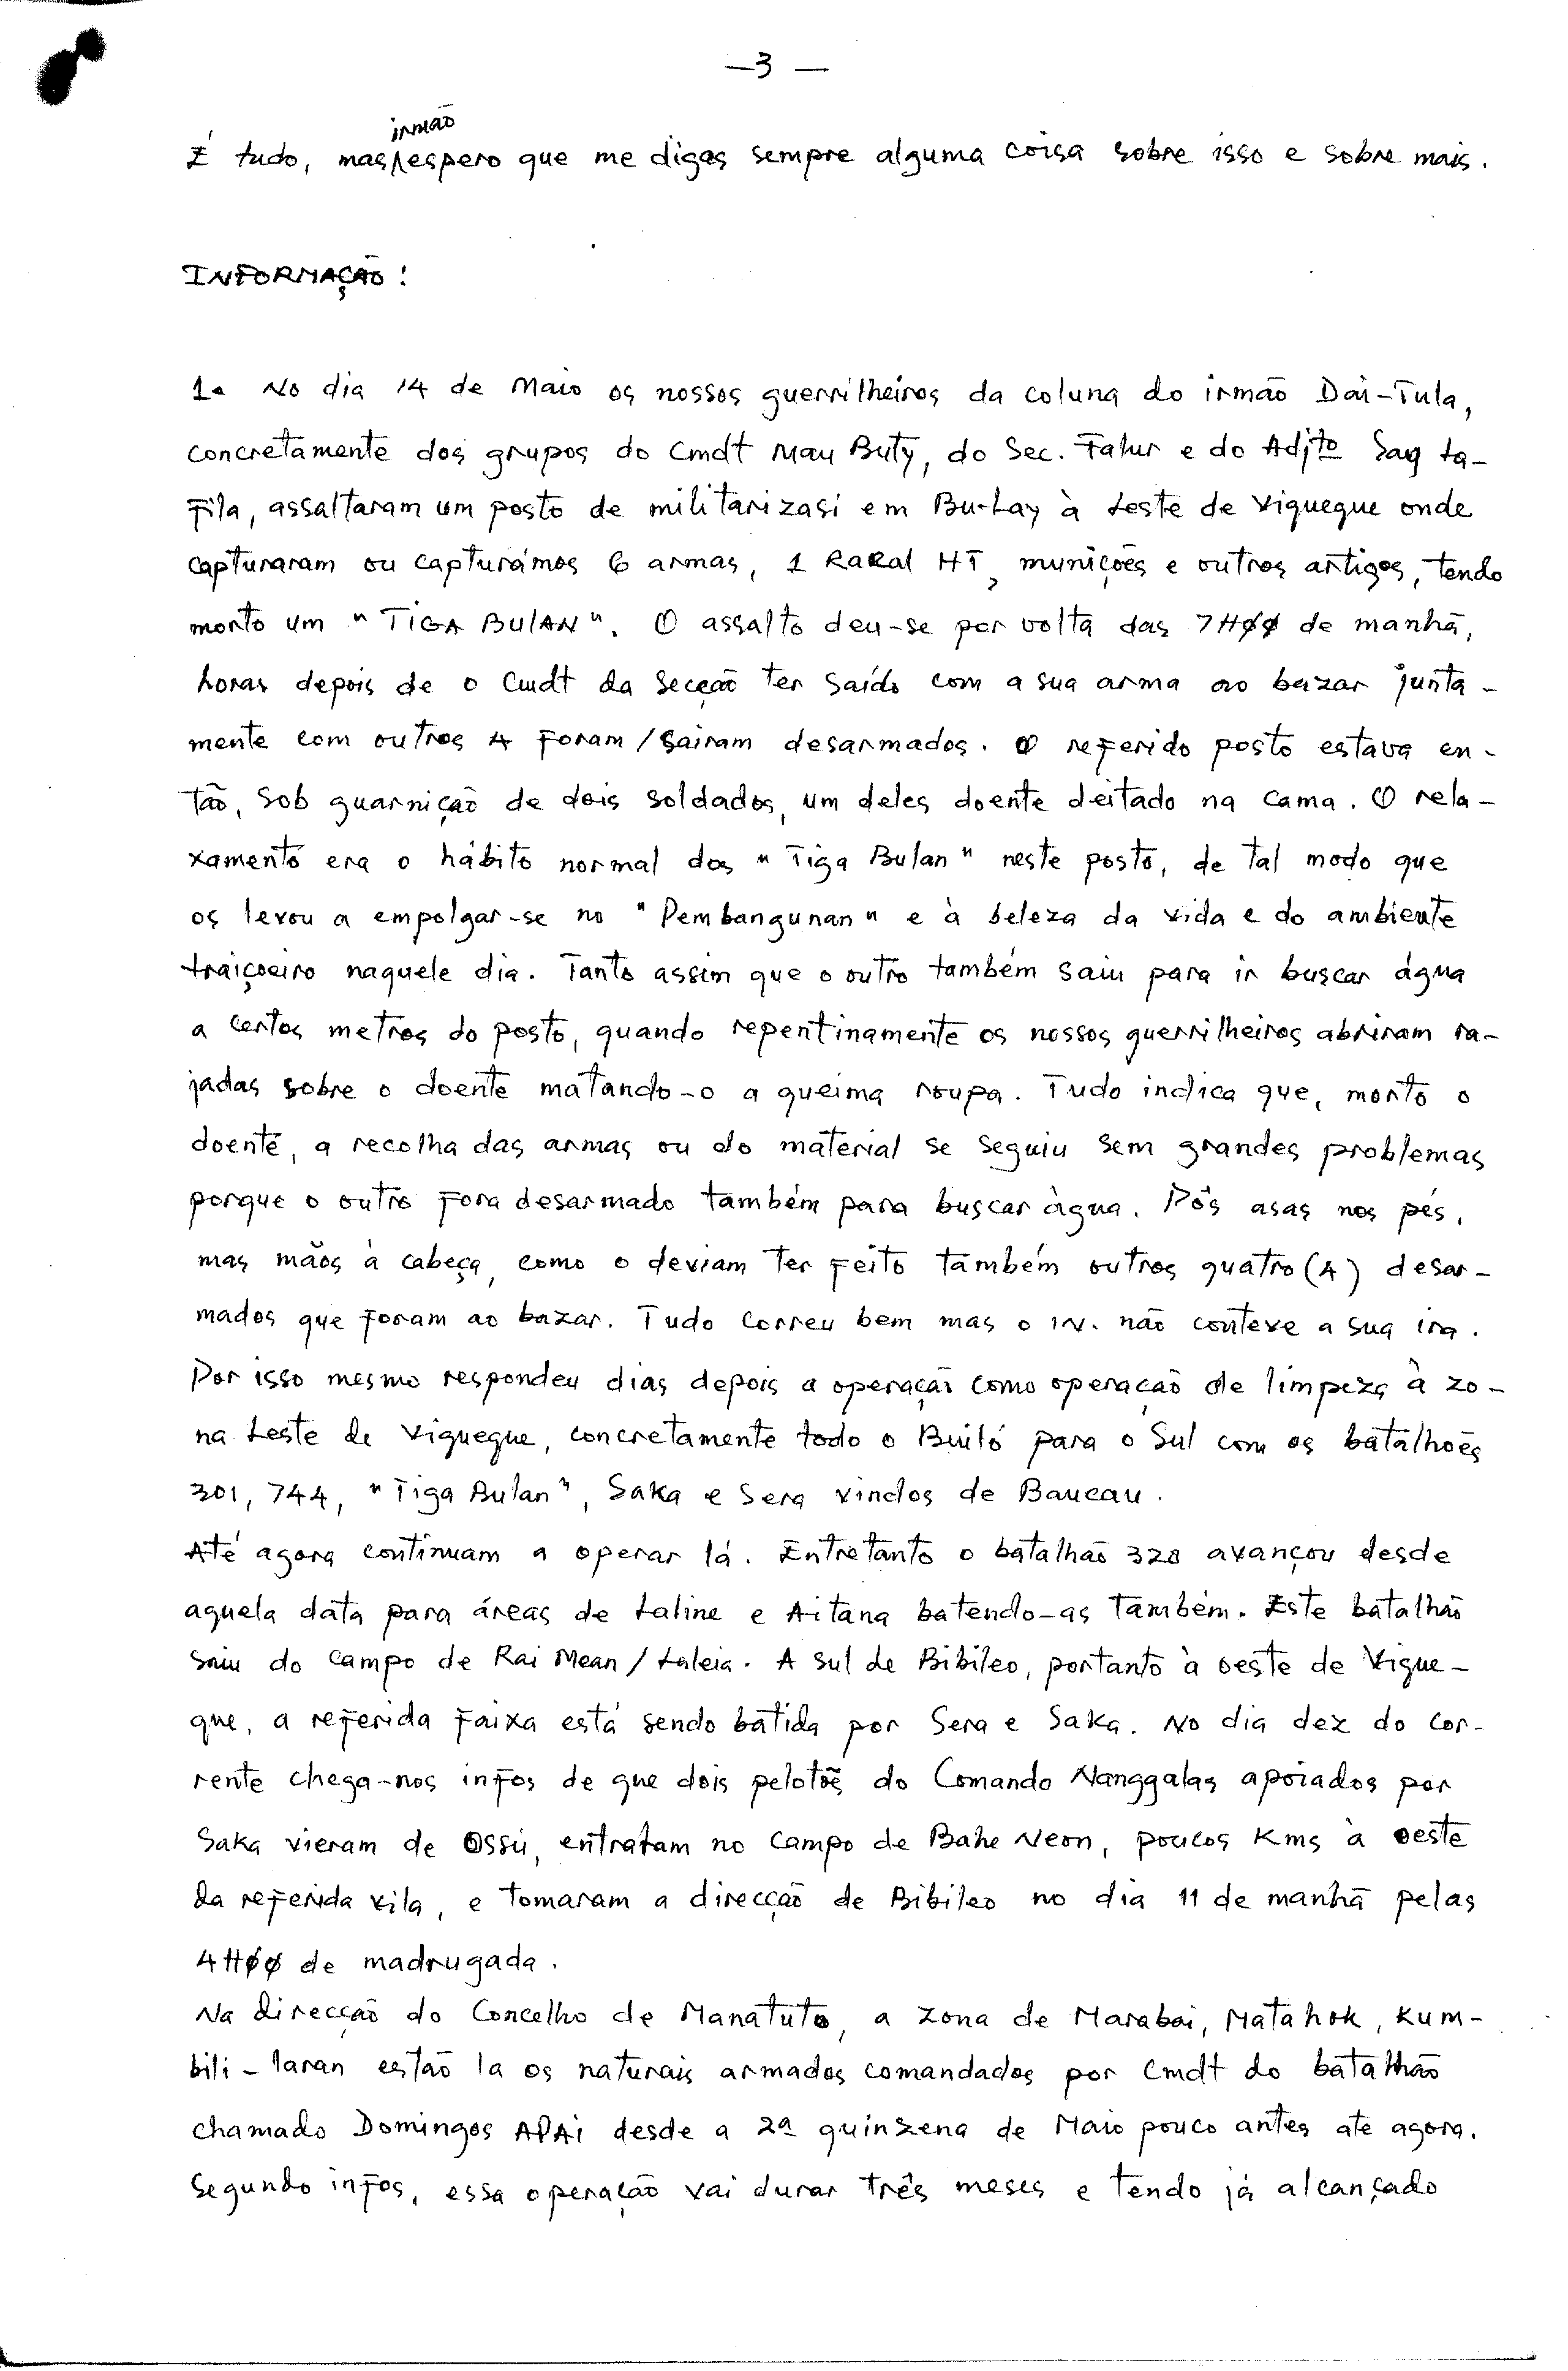 —3 —
irmão
É tudo, mas/espero que me digas sempre alguma coisa sobre isso e sobre mais.
INFORMAÇÃO:
1. No dia 14 de Maio os nossos guerrilheiros da coluna do irmão Dai-Tula,
concretamente dos grupos do Cmdt Mau Buty, do Sec. Falur e do Adjto Saq La-
Fila, assaltaram um posto de militarizasi em Bu-Lay à Leste de Viqueque onde
capturaram ou capturámos 6 armas, 1 Rakal HT, munições e outros artigos, tendo
morto um "TIGA BULAN". O assalto deu-se por volta das 7H00 de manhã,
horas depois de o Cmdt da Secção ter saído com a sua arma ao bazar junta-
mente com outros 4 foram/sairam desarmados. O referido posto estava en-
tão, sob guarnição de dois soldados, um deles doente deitado na cama. O rela-
xamento era o hábito normal dos "Tiga Bulan" neste posto, de tal modo que
os levou a empolgar-se no "Pembangunan" e à beleza da vida e do ambiente
traiçoeiro naquele dia. Tanto assim que o outro também saiu para ir buscar água
a certos metros do posto, quando repentinamente os nossos guerrilheiros abriram ra-
jadas sobre o doente matando-o a queima roupa. Tudo indica que, morto o
doente, a recolha das armas ou do material se seguiu sem grandes problemas
porque o outro fora desarmado também para buscar àgua. Pôs asas nos pés,
mas mãos à cabeça, como o deviam ter feito também outros quatro (4) desar-
mados que foram ao bazar. Tudo correu bem mas o IN. não conteve a sua ira.
Por isso mesmo respondeu dias depois a operação como operação de limpeza à zo-
na Leste de Viqueque, concretamente todo o Builó para o Sul com os batalhões
301, 744, "Tiga Bulan", Saka e Sera vindos de Baucau.
Até agora continuam a operar lá. Entretanto o batalhão 328 avançou desde
aquela data para áreas de Laline e Aitana batendo-as também. Este batalhão
saiu do campo de Rai Mean/Laleia. A sul de Bibileo, portanto à oeste de Vique-
que, a referida faixa está sendo batida por Sera e Saka. No dia dez do cor-
rente chega-nos infos de que dois pelotõe˜s do Comando Nanggalas apoiados por
Saka vieram de Ossú, entraram no campo de Bahe Neon, poucos Kms à oeste
da referida vila, e tomaram a direcção de Bibileo no dia 11 de manhã pelas
4H00 de madrugada.
Na direcção do Concelho de Manatuto, a zona de Marabai, Matahok, Kum-
bili-laran estão la os naturais armados comandados por Cmdt do batalhão
chamado Domingos APAI desde a 2ª quinzena de Maio pouco antes ate agora.
Segundo infos, essa operação vai durar três meses e tendo já alcançado